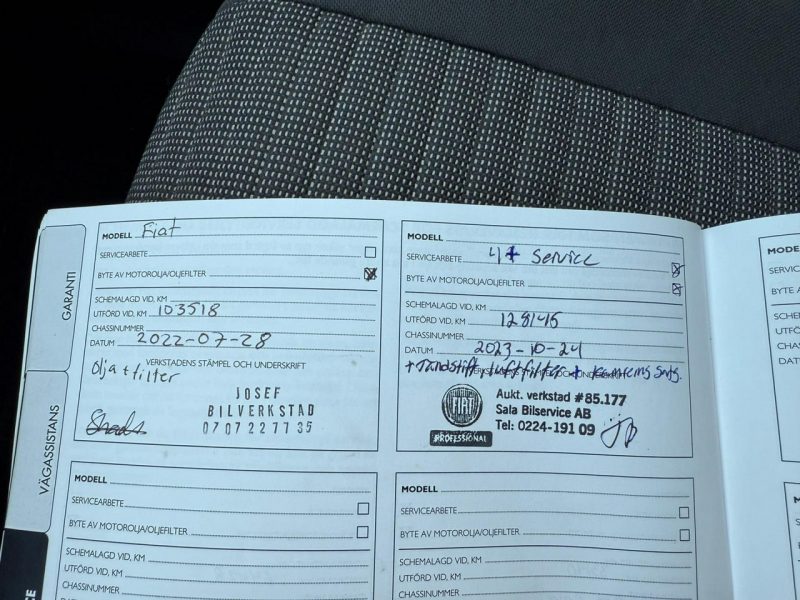 GARANTI
VÄGASSISTANS
CE
MODELL Fiat
SERVICEARBETE
BYTE AV MOTOROLJA/OLJEFILTER
SCHEMALAGD VID, KM
UTFÖRD VID, KM 103518
CHASSINUMMER
DATUM 2022-07-28
VERKSTADENS STÄMPEL OCH UNDERSKRIFT
Olja + filter
JOSEF
BILVERKSTAD
0707227735
MODELL
SERVICEARBETE 4+ Service
BYTE AV MOTOROLJA/OLJEFILTER
SCHEMALAGD VID, KM
UTFÖRD VID, KM 128145
CHASSINUMMER
DATUM 2023-10-24
+ Tändstift, luftfilter + kamrems sats.
FIAT
PROFESSIONAL
Aukt. verkstad #85.177
Sala Bilservice AB
Tel: 0224-191 09
MODELL
SERVICEARBETE
BYTE AV MOTOROLJA/OLJEFILTER
SCHEMALAGD VID, KM
UTFÖRD VID, KM
CHASSINUMMER
MODELL
SERVICEARBETE
BYTE AV MOTOROLJA/OLJEFILTER
SCHEMALAGD VID, KM
UTFÖRD VID, KM
CHASSINUMMER
MODE
SERVIC
BYTE A
SCHE
UTFÖ
CHAS
DATU